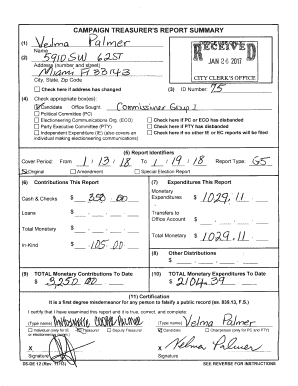 CAMPAIGN TREASURER'S REPORT SUMMARY
(1) Velma Palmer
Name
(2) 5910 SW 62 ST
Address (number and street)
Miami Fl 33143
City, State, Zip Code
OFFICE USE ONLY
RECEIVED
JAN 26 2017
CITY CLERK'S OFFICE
Check here if address has changed
(3) ID Number: 75
(4) Check appropriate box(es):
Candidate Office Sought: Commissioner Group 1
Political Committee (PC)
Electioneering Communications Org. (ECO) Check here if PC or ECO has disbanded
Party Executive Committee (PTY) Check here if PTY has disbanded
Independent Expenditure (IE) (also covers an individual making electioneering communications) Check here if no other IE or EC reports will be filed
(5) Report Identifiers
Cover Period: From 1 / 13 / 18 To 1 / 19 / 18 Report Type: G5
Original Amendment Special Election Report
(6) Contributions This Report
Cash & Checks $ 350.00
Loans $
Total Monetary $
In-Kind $ 105.00
(7) Expenditures This Report
Monetary
Expenditures $ 1029.11
Transfers to
Office Account $
Total Monetary $ 1029.11
(8) Other Distributions
$
(9) TOTAL Monetary Contributions To Date
$ 3250.00
(10) TOTAL Monetary Expenditures To Date
$ 2104.39
(11) Certification
It is a first degree misdemeanor for any person to falsify a public record (ss. 839.13, F.S.)
I certify that I have examined this report and it is true, correct, and complete:
(Type name) Palmer
Individual (only for IE or electioneering comm.) Treasurer Deputy Treasurer
X
Signature
(Type name) Velma Palmer
Candidate Chairperson (only for PC and PTY)
X Velma Palmer
Signature
DS-DE 12 (Rev. 11/13)
SEE REVERSE FOR INSTRUCTIONS